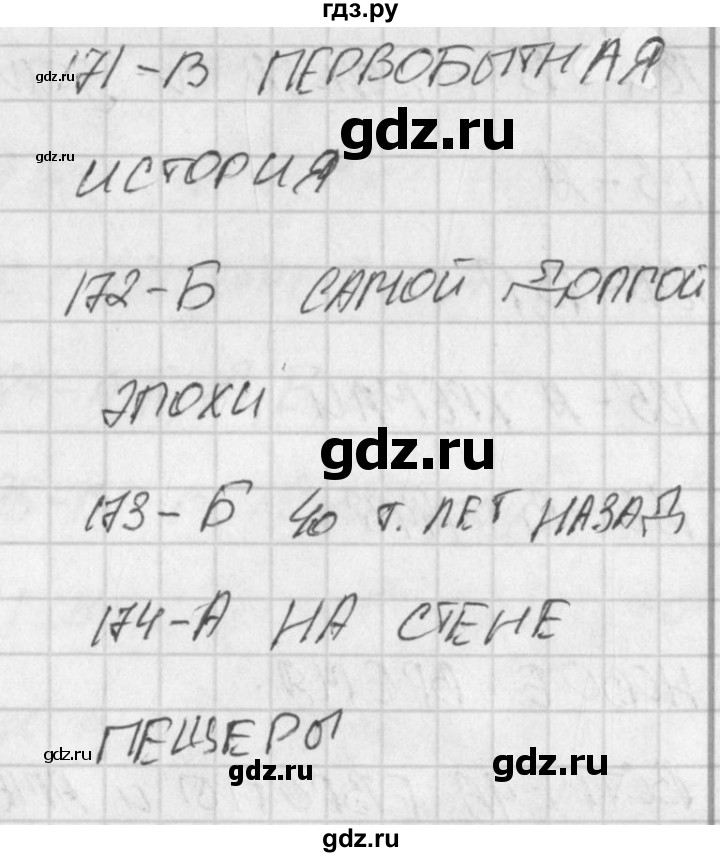 гдз.ру
gdz.ru 171-В ПЕРВОБЫТНАЯ
gdz.ru
gdz.ru ИСТОРИЯ
172-Б САМОЙ ДОЛГОЙ
ЭПОХИ
gdz.ru
173-Б 40 Т. ЛЕТ НАЗАД
174-А НА СТЕНЕ
gdz.ru ПЕЩЕРЫ gdz.ru
gdz.ru
gdz.ru